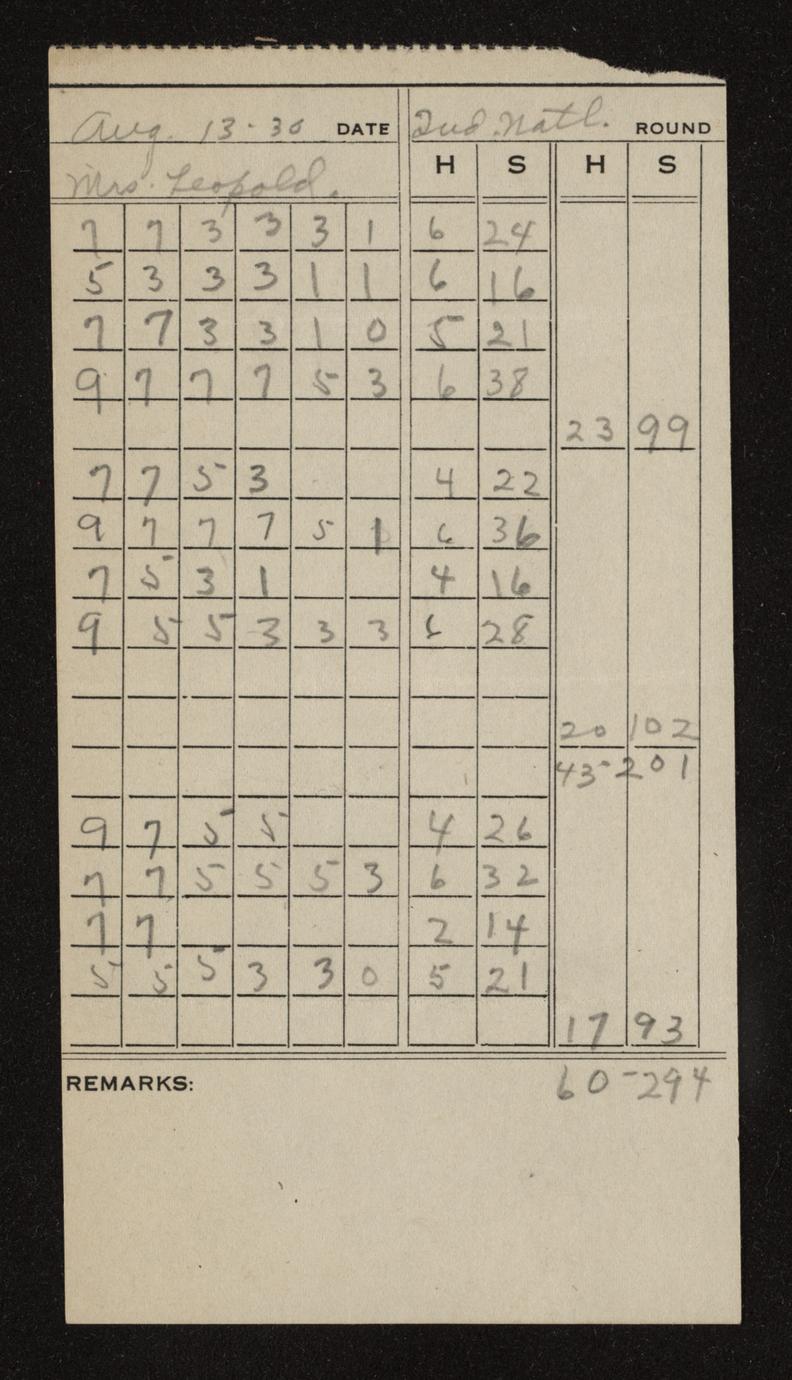 Aug. 13-30 DATE 2nd. Natl. ROUND
Mrs. Leopold. H S H S
7 7 3 3 3 1 6 24
5 3 3 3 1 1 6 16
7 7 3 3 1 0 5 21
9 7 7 7 5 3 6 38
23 99
7 7 5 3 4 22
9 7 7 7 5 1 6 36
7 5 3 1 4 16
9 5 5 3 3 3 6 28
20 102
43-201
9 7 5 5 4 26
7 7 5 5 5 3 6 32
7 7 2 14
5 5 5 3 3 0 5 21
17 93
REMARKS: 60-294